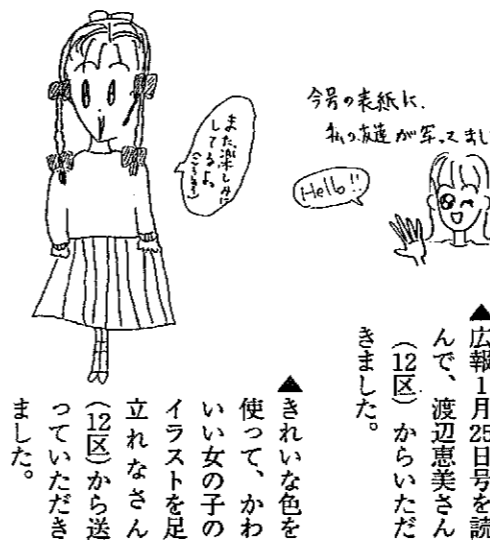 今号の表紙に、
私の友達が写ってまし
Hello!!
▲広報1月25日号を読
んで、渡辺恵美さん
（12区）からいただ
きました。
また楽しみに
してるよ。
▲きれいな色を
使って、かわ
いい女の子の
イラストを足
立れなさん
（12区）から送
っていただき
ました。